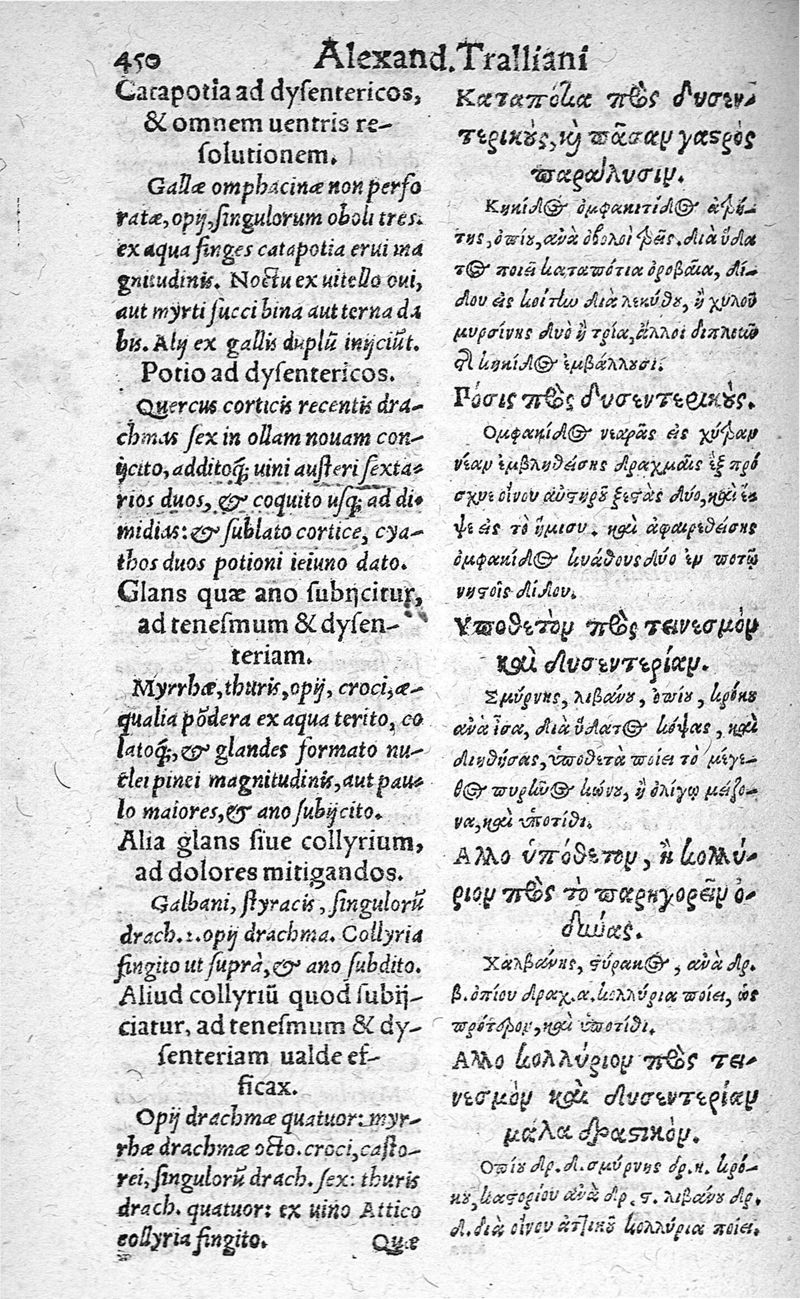 450 Alexand. Tralliani
Catapotia ad dysentericos,
& omnem uentris re-
solutionem.
Gallæ omphacinæ non perfo
ratæ, opij, singulorum oboli tres.
ex aqua finges catapotia erui ma
gnitudinis. Noctu ex uitello oui,
aut myrti succi bina aut terna da
bis. Alij ex gallis duplũ inijciũt.
Potio ad dysentericos.
Quercus corticis recentis dra-
chmas sex in ollam nouam con-
ijcito, additoq; uini austeri sexta-
rios duos, & coquito usq; ad di-
midias: & sublato cortice, cya-
thos duos potioni ieiuno dato.
Glans quæ ano subijcitur,
ad tenesmum & dysen-
teriam.
Myrrhæ, thuris, opij, croci, æ-
qualia põdera ex aqua terito, co
latoq;, & glandes formato nu-
clei pinei magnitudinis, aut pau-
lo maiores, & ano subijcito.
Alia glans siue collyrium,
ad dolores mitigandos.
Galbani, styracis, singulorũ
drach. 2. opij drachma. Collyria
fingito ut suprà, & ano subdito.
Aliud collyriũ quod subij-
ciatur, ad tenesmum & dy-
senteriam ualde ef-
ficax.
Opij drachmæ quatuor: myr-
rhæ drachmæ octo. croci, casto-
rei, singulorũ drach. sex: thuris
drach. quatuor: ex uino Attico
collyria fingito. Quæ
Καταπότια πρὸς δυσεν-
τερικοὺς, καὶ πᾶσαν γαστρὸς
παράλυσιν.
Κηκίδος ὀμφακίτιδος ἀτρή-
της, ὀπίου, ἀνὰ ὀβολοὶ τρεῖς. διὰ ὕδα
τος ποιεῖ καταπότια ὀροβαῖα, δί-
δου εἰς κοίτην διὰ λεκύθου, ἢ χυλοῦ
μυρσίνης δύο ἢ τρία, ἄλλοι διπλοῦν
τῆς κηκίδος ἐμβάλλουσι.
Πόσις πρὸς δυσεντερικούς.
Ομφακίδος νεαρᾶς εἰς χύτραν
νέαν ἐμβληθείσης δραχμαῖς ἓξ πρό
σχυε οἴνου αὐστηροῦ ξέστας δύο, καὶ ἕ
ψε εἰς τὸ ἥμισυ. καὶ ἀφαιρεθείσης
ὀμφακίδος κυάθους δύο ἐν ποτῷ
νήστοις δίδου.
Υποθετὸν πρὸς τεινεσμὸν
καὶ δυσεντερίαν.
Σμύρνης, λιβάνου, ὀπίου, κρόκου
ἀνὰ ἶσα, διὰ ὕδατος κόψας, καὶ
διηθήσας, ὑποθετὰ ποίει τὸ μέγε-
θος πυρῶνος κώνου, ἢ ὀλίγῳ μείζο-
να, καὶ ὑποτίθι.
Αλλο ὑπόθετον, ἢ κολλύ-
ριον πρὸς τὸ παρηγορεῖν ὀ-
δύνας.
Χαλβάνης, στύρακος, ἀνὰ δρ.
β. ὀπίου δραχ. α. κολλύρια ποίει, ὡς
πρότερον, καὶ ὑποτίθι.
Αλλο κολλύριον πρὸς τει-
νεσμὸν καὶ δυσεντερίαν
μάλα δραστικὸν.
Οπίου δρ. δ. σμύρνης δρ. η. κρό-
κου, καστορίου ἀνὰ δρ. ϛ. λιβάνου δρ.
δ. διὰ οἴνου ἀττικοῦ κολλύρια ποίει.